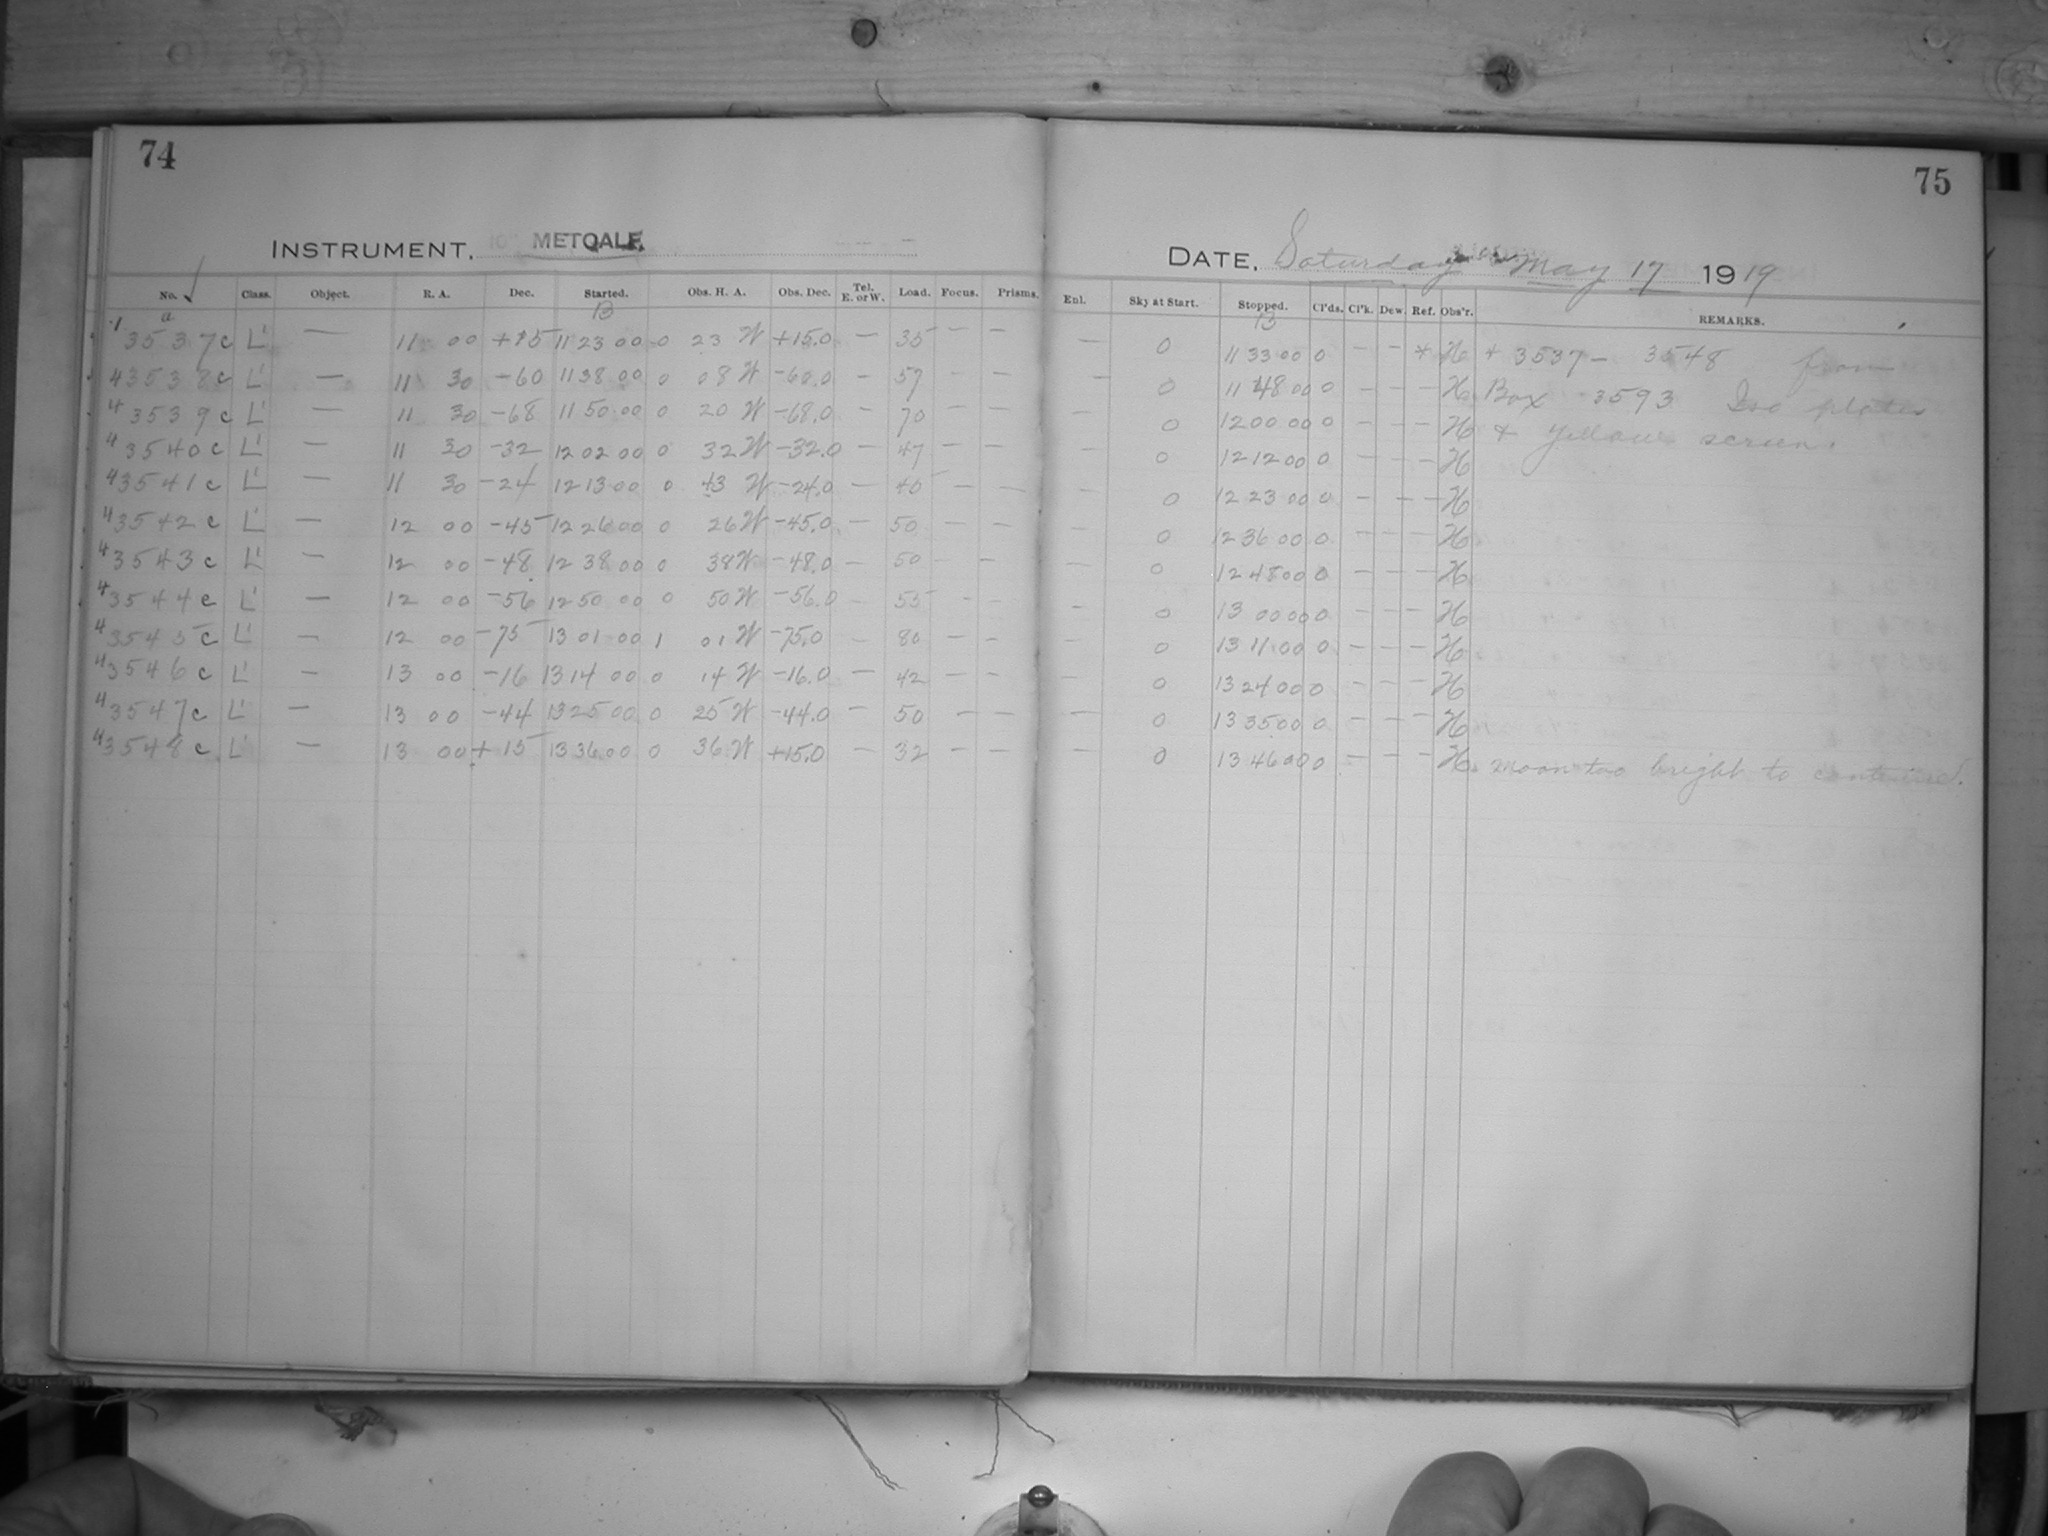 74
75
INSTRUMENT, METCALF
DATE, Saturday May 17 1919
No. Class. Object. R. A. Dec. Started. Obs. H. A. Obs. Dec. Tel. E. or W. Load. Focus. Prisms. Enl. Sky at Start. Stopped. Cl'ds. Cl'k. Dew. Ref. Obs'r. REMARKS.
B 13
3537c L' — 11 00 +15 11 23 00 0 23 W +15.0 — 35 — — — 0 11 33 00 0 — — * H * 3537 — 3548 from
43538c L' — 11 30 -60 11 38 00 0 08 W -60.0 — 57 — — — 0 11 48 00 0 — — — H Box 3593 Iso plates
43539c L' — 11 30 -68 11 50 00 0 20 W -68.0 — 70 — — — 0 12 00 00 0 — — — H & yellow screen.
43540c L' — 11 30 -32 12 02 00 0 32 W -32.0 — 47 — — — 0 12 12 00 0 — — — H
43541c L' — 11 30 -24 12 13 00 0 43 W -24.0 — 40 — — — 0 12 23 00 0 — — — H
43542c L' — 12 00 -45 12 26 00 0 26 W -45.0 — 50 — — — 0 12 36 00 0 — — — H
43543c L' — 12 00 -48 12 38 00 0 38 W -48.0 — 50 — — — 0 12 48 00 0 — — — H
43544c L' — 12 00 -56 12 50 00 0 50 W -56.0 — 55 — — — 0 13 00 00 0 — — — H
43545c L' — 12 00 -75 13 01 00 1 01 W -75.0 — 80 — — — 0 13 11 00 0 — — — H
43546c L' — 13 00 -16 13 14 00 0 14 W -16.0 — 42 — — — 0 13 24 00 0 — — — H
43547c L' — 13 00 -44 13 25 00 0 25 W -44.0 — 50 — — — 0 13 35 00 0 — — — H
43548c L' — 13 00 +15 13 36 00 0 36 W +15.0 — 32 — — — 0 13 46 00 0 — — — H moon too bright to continue.